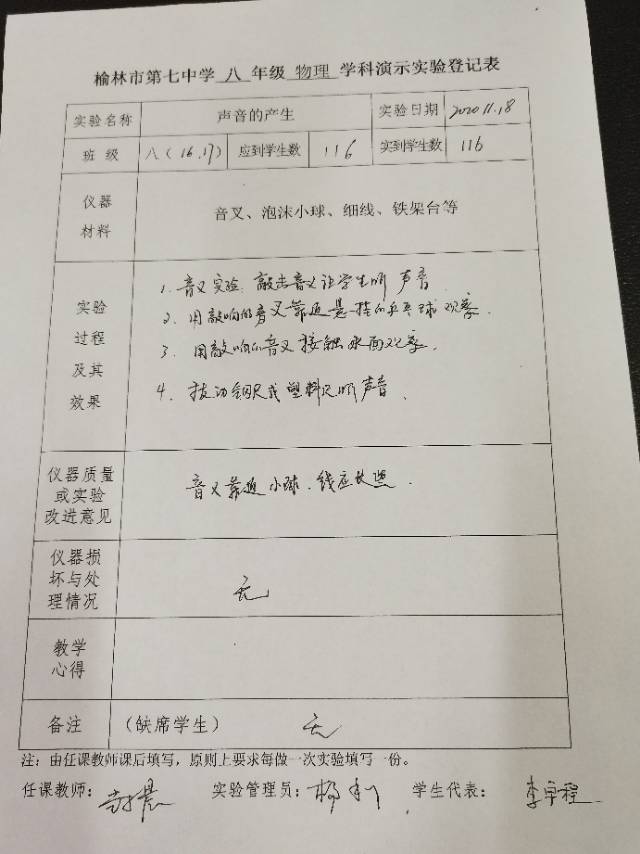 榆林市第七中学 八 年级 物理 学科演示实验登记表
实验名称 声音的产生 实验日期 2020.11.18
班 级 八(16.17) 应到学生数 116 实到学生数 116
仪器
材料
音叉、泡沫小球、细线、铁架台等
实验
过程
及其
效果
1. 音叉实验. 敲击音叉让学生听声音
2. 用敲响的音叉靠近悬挂的乒乓球观察.
3. 用敲响的音叉接触水面观察.
4. 拨动钢尺或塑料尺听声音.
仪器质量
或实验
改进意见
音叉靠近小球.线应长些.
仪器损
坏与处
理情况
无
教学
心得
备注 (缺席学生) 无
注: 由任课教师课后填写,原则上要求每做一次实验填写一份。
任课教师: 实验管理员: 杨利 学生代表: 李宇程